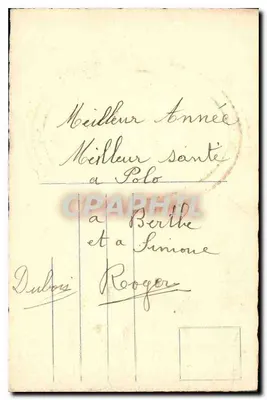 Meilleur Année
Meilleur santé
a Polo
CPARAMA
à Berthe
et a Simone
Dubois Roger